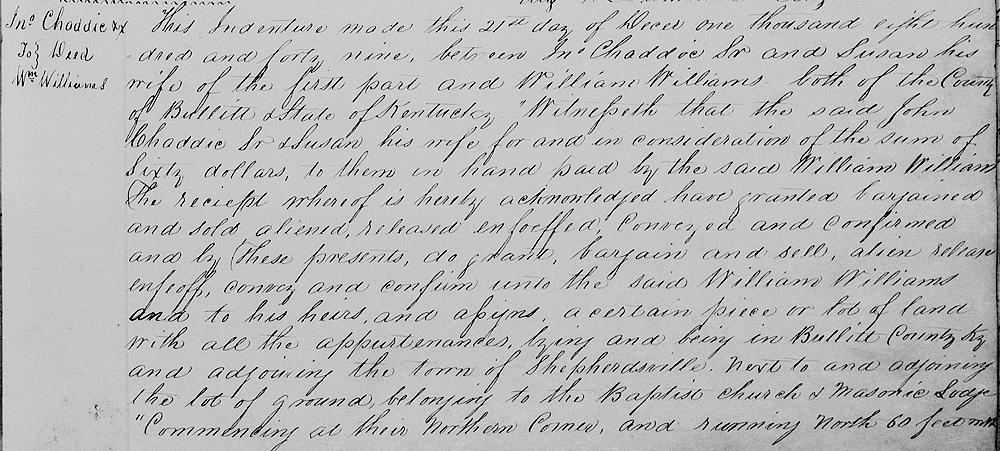 Jno Chaddic &x
To } Deed
Wm Williams
This Indenture made this 21st day of Decer one thousand eight hun
dred and forty nine, between Jno Chaddoc Sr and Susan his
wife of the first part and William Williams both of the County
of Bullitt & State of Kentucky "Witnesseth that the said John
Chaddic Sr & Susan his wife for and in consideration of the sum of
Sixty dollars, to them in hand paid by the said William William
The reciept whereof is hereby acknowledged have granted bargained
and sold aliened, released enfoeffed, Conveyed and Confirmed
and by These presents, do grant, bargain and sell, alien release
enfeoff, convey and confirm unto the said William Williams
and to his heirs, and assigns, a certain piece or lot of land
with all the appurtenances, lying and being in Bullitt County Ky
and adjoining the town of Shepherdsville. Next to and adjoining
the lot of ground, belonging to the Baptist church & Masonic Lodge
"Commencing at their Northern Corner, and running North 60 feet